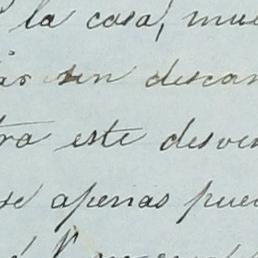 la casa, mue
ás sin descan
ra este desven
se apenas pue